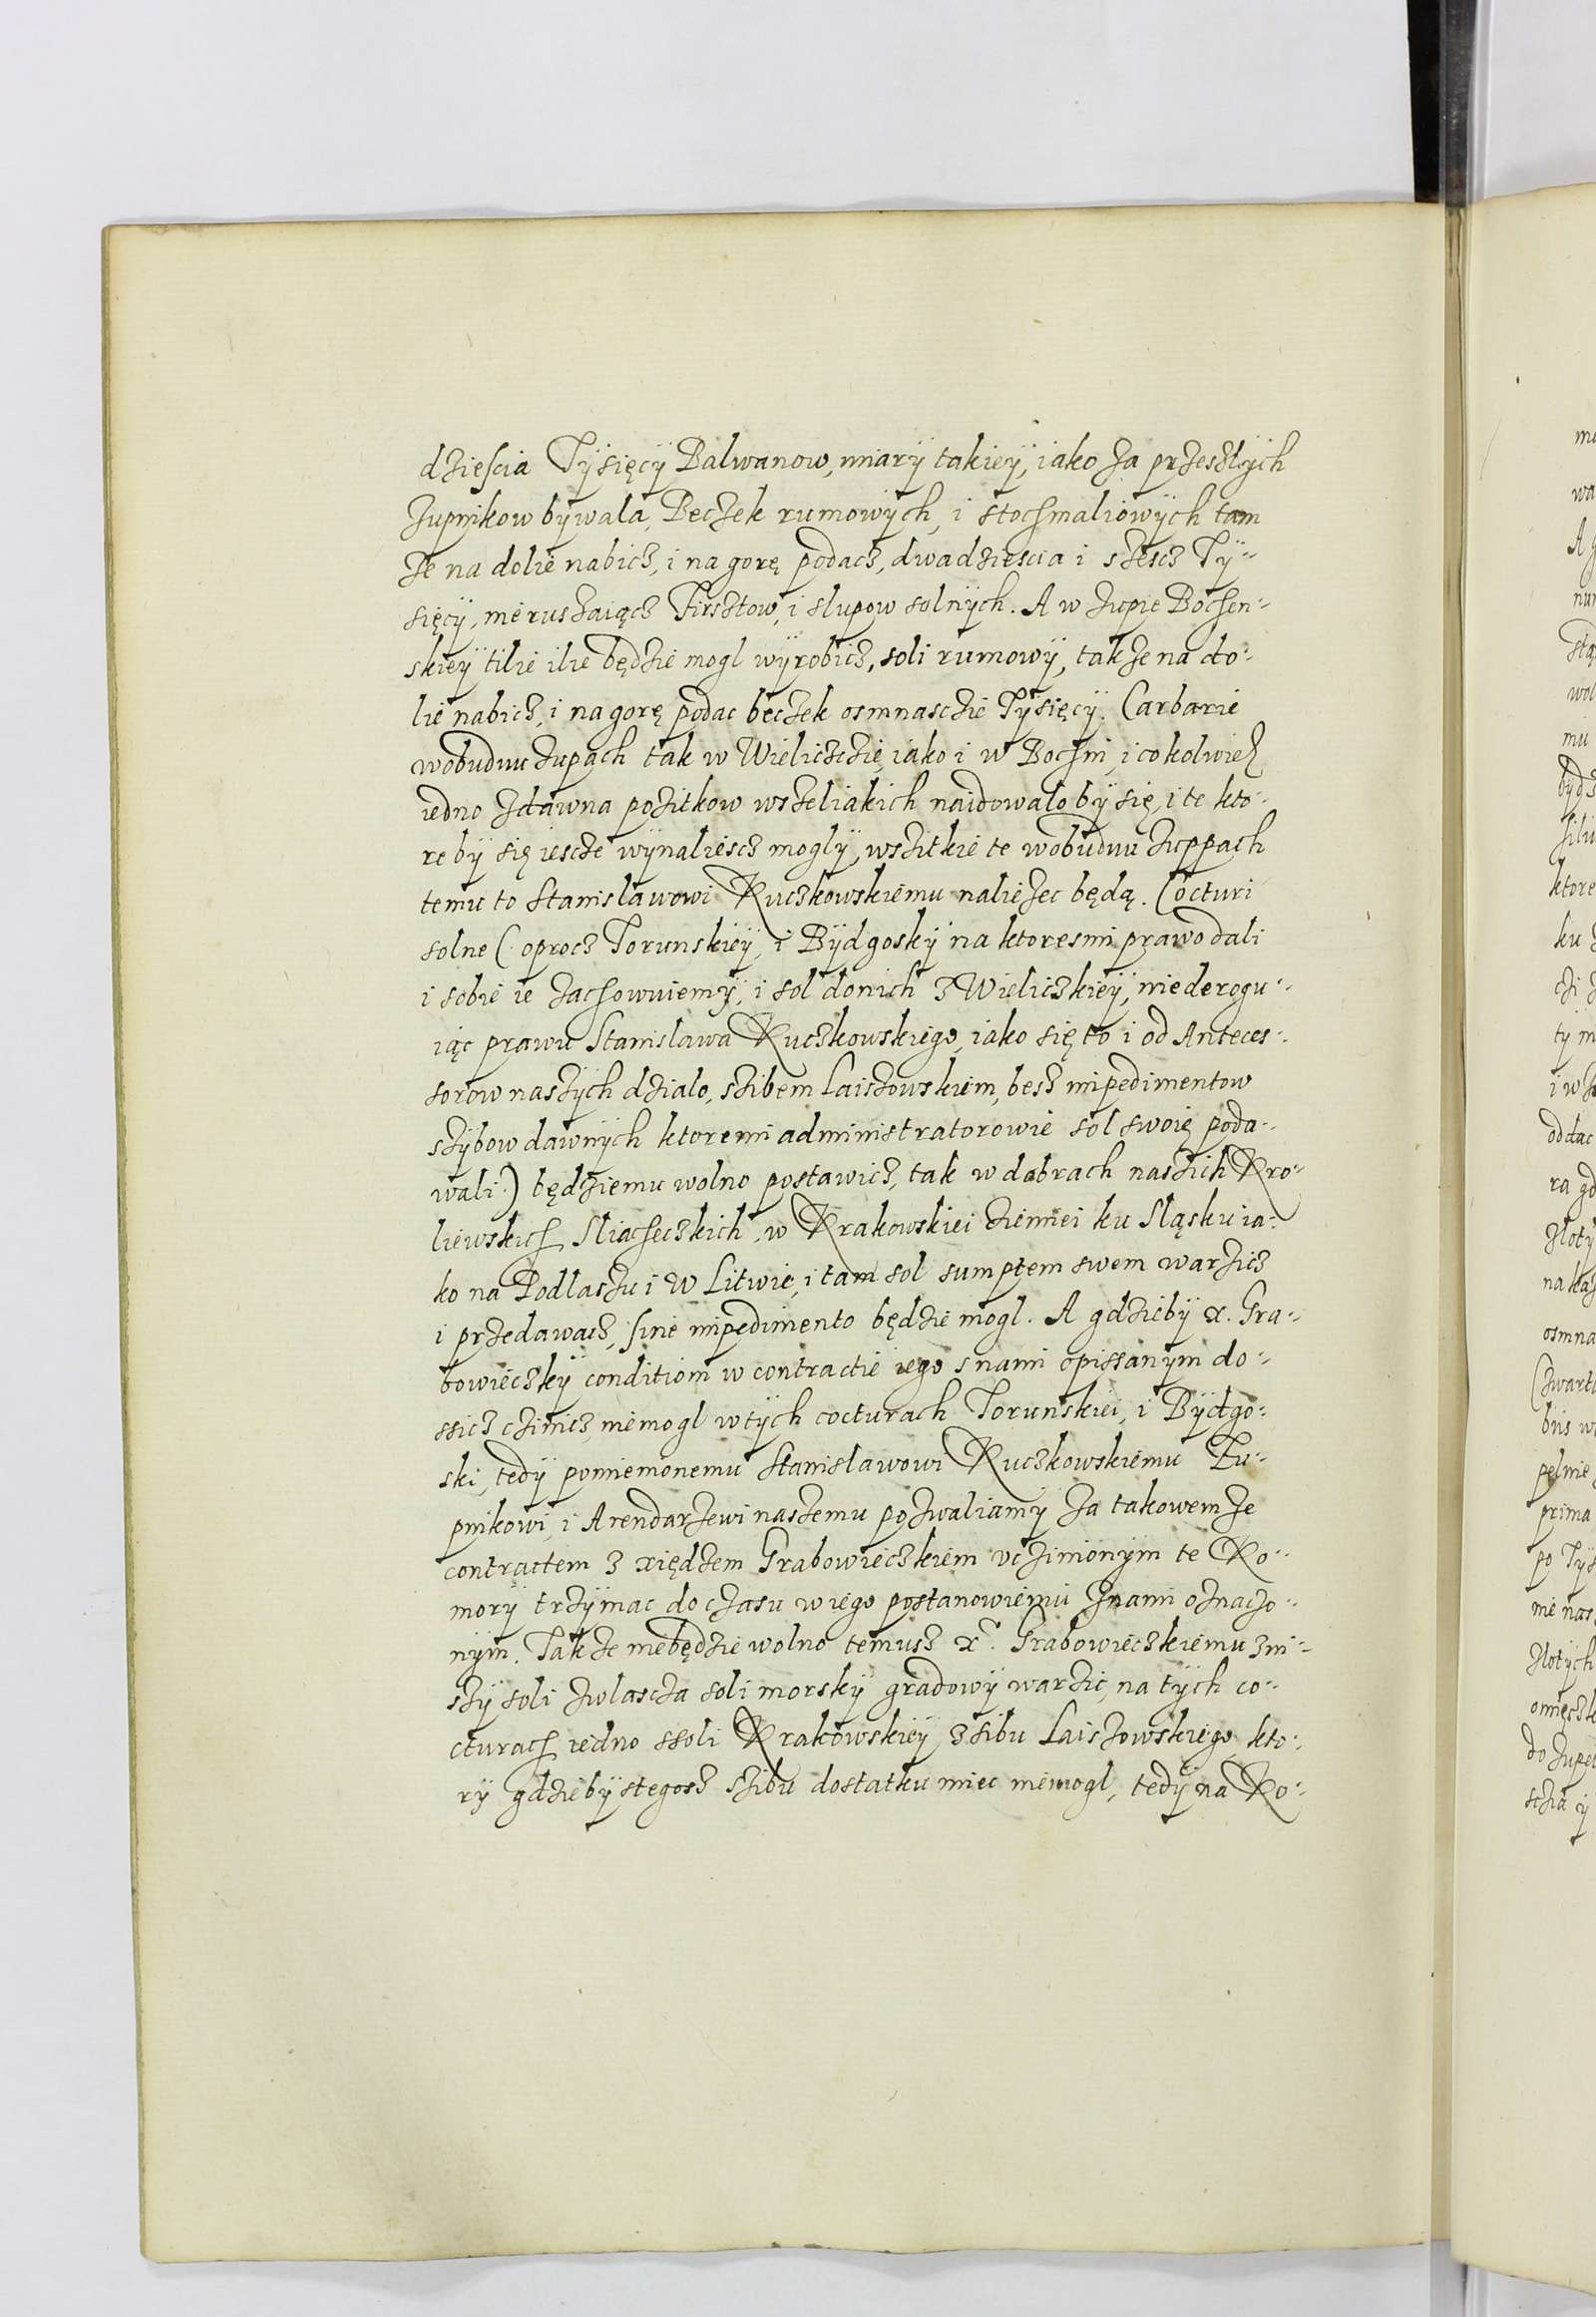 dziescia Tysięcÿ Balwanow, miarÿ takieÿ, iako za przeszlÿch
zupnikow bÿwala, Beczek rumowÿch, i stochmaliowÿch tam
ze na dolie nabicz, i na gorę podacz, dwadziescia i szescz Tÿ-
sięcÿ, nieruszaiącz Firsztow, i slupow solnÿch. A w zupie Bochen-
skieÿ tilie ilie będzie mogl wÿrobicz, soli rumowÿ, takze na do-
lie nabicz, i na gorę podac beczek osmnasczie Tÿsięcÿ. Carbarie
wobudwu zupach tak w Wieliczczie, iako i w Bochni, i cokolwiek
iedno zdawna pozitkow wszeliakich naidowalo bÿ się, i te kto-
re bÿ się iescze wÿnaliescz moglÿ, wszitkie te wobudwu zuppach
temu to Stanislawowi Kuczkowskiemu naliezec będą. Cocturi
solne (: oprocz Torunskieÿ, i Bÿdgoskÿ na ktoresmi prawo dali
i sobie ie zachowuiemÿ, i sol donich z Wieliczkieÿ, niederogu-
iąc prawu Stanislawa Kuczkowskiego, iako się to i od Anteces-
sorow naszÿch dzialo, szibem Laiszowskiem, besz impedimentow
szÿbow dawnÿch ktoremi administratorowie sol swoię poda-
wali:) będziemu wolno postawicz, tak w dobrach naszich Kro-
liewskich Sliacheczkich, w Krakowskiei ziemiei ku Sląsku ia-
ko na Podlaszu i w Litwie, i tam sol sumptem swem warzicz
i przedawacz, sine impedimento będzie mogl. A gdziebÿ x. Gra-
bowieczkÿ conditiom w contractie iego s nami opissanÿm do-
ssicz czinicz, niemogl wtÿch cocturach Torunskiei, i Bÿdgo-
ski, tedÿ pomienionemu Stanislawowi Kuczkowskiemu Zu-
pnikowi, i Arendarzewi naszemu pozwaliamÿ za takowemze
contractem z xiędzem Grabowieczkiem vczinionÿm te Ko-
morÿ trzÿmac do czasu w iego postanowieniu znami oznaczo-
nÿm. Takze niebędzie wolno temusz x. Grabowieczkiemu ini-
szÿ soli zwlascza soli morskÿ gradowÿ warzic, na tÿch co-
cturach iedno ssoli Krakowskieÿ z sibu Laiszowskiego, kto-
rÿ gdziebÿ stegosz szibu dostatku miec niemogl, tedÿ na Ko-